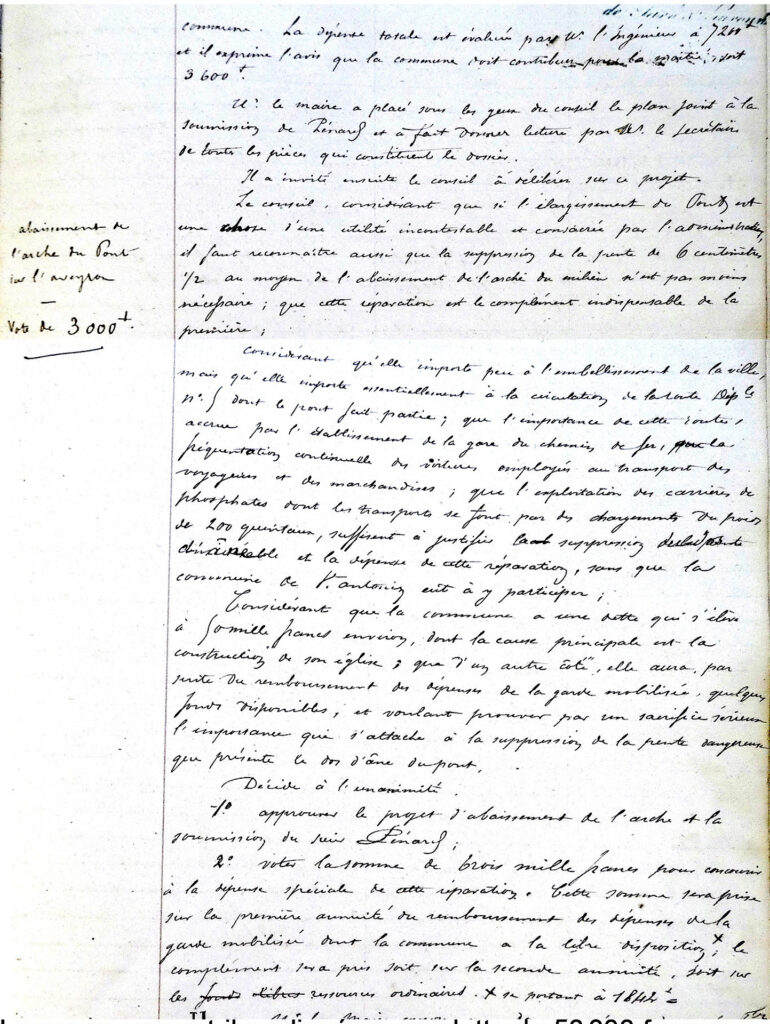 commune. La dépense totale est évaluée par Mr l'Ingénieur à 7200f
et il exprime l'avis que la commune doit contribuer pour la moitié, soit
3600f.
Mr le maire a placé sous les yeux du conseil le plan joint à la
soumission de Pénard et a fait donner lecture par Mr. le Secrétaire
de toutes les pièces qui constituent le dossier.
Il a invité ensuite le conseil à délibérer sur ce projet.
Le conseil, considérant que si l'élargissement du Pont est
une chose d'une utilité incontestable et consacrée par l'administration,
il faut reconnaître aussi que la suppression de la pente de 6 centimètres
1/2 au moyen de l'abaissement de l'arche du milieu n'est pas moins
nécessaire ; que cette réparation est le complément indispensable de la
première ;
abaissement de
l'arche du Pont
sur l'aveyron
—
Vote de 3000f.
Considérant qu'elle importe peu à l'embellissement de la ville,
mais qu'elle importe essentiellement à la circulation de la route Dple
n°. 5 dont le pont fait partie ; que l'importance de cette route,
accrue par l'établissement de la gare du chemin de fer, la
fréquentation continuelle des voitures employés au transport des
voyageurs et des marchandises ; que l'exploitation des carrières de
phosphates dont les transports se font par des chargements du poids
de 200 quintaux, suffisent à justifier la suppression
et la dépense de cette réparation, sans que la
commune de St. antonin eût à y participer ;
Considérant que la commune a une dette qui s'élève
à 50 mille francs environ, dont la cause principale est la
construction de son église ; que d'un autre côté, elle aura, par
suite du remboursement des dépenses de la garde mobilisée, quelques
fonds disponibles ; et voulant prouver par un sacrifice sérieux
l'importance qui s'attache à la suppression de la pente dangereuse
que présente le dos d'âne du pont,
Décide à l'unanimité.
1° approuver le projet d'abaissement de l'arche et la
soumission du sieur Pénard ;
2° voter la somme de trois mille francs pour concourir
à la dépense spéciale de cette réparation. Cette somme sera prise
sur la première annuité du remboursement des dépenses de la
garde mobilisée dont la commune a la libre disposition + ; le
complément sera pris soit sur la seconde annuité, soit sur
les fonds libres ressources ordinaires. + se portant à 1842f =